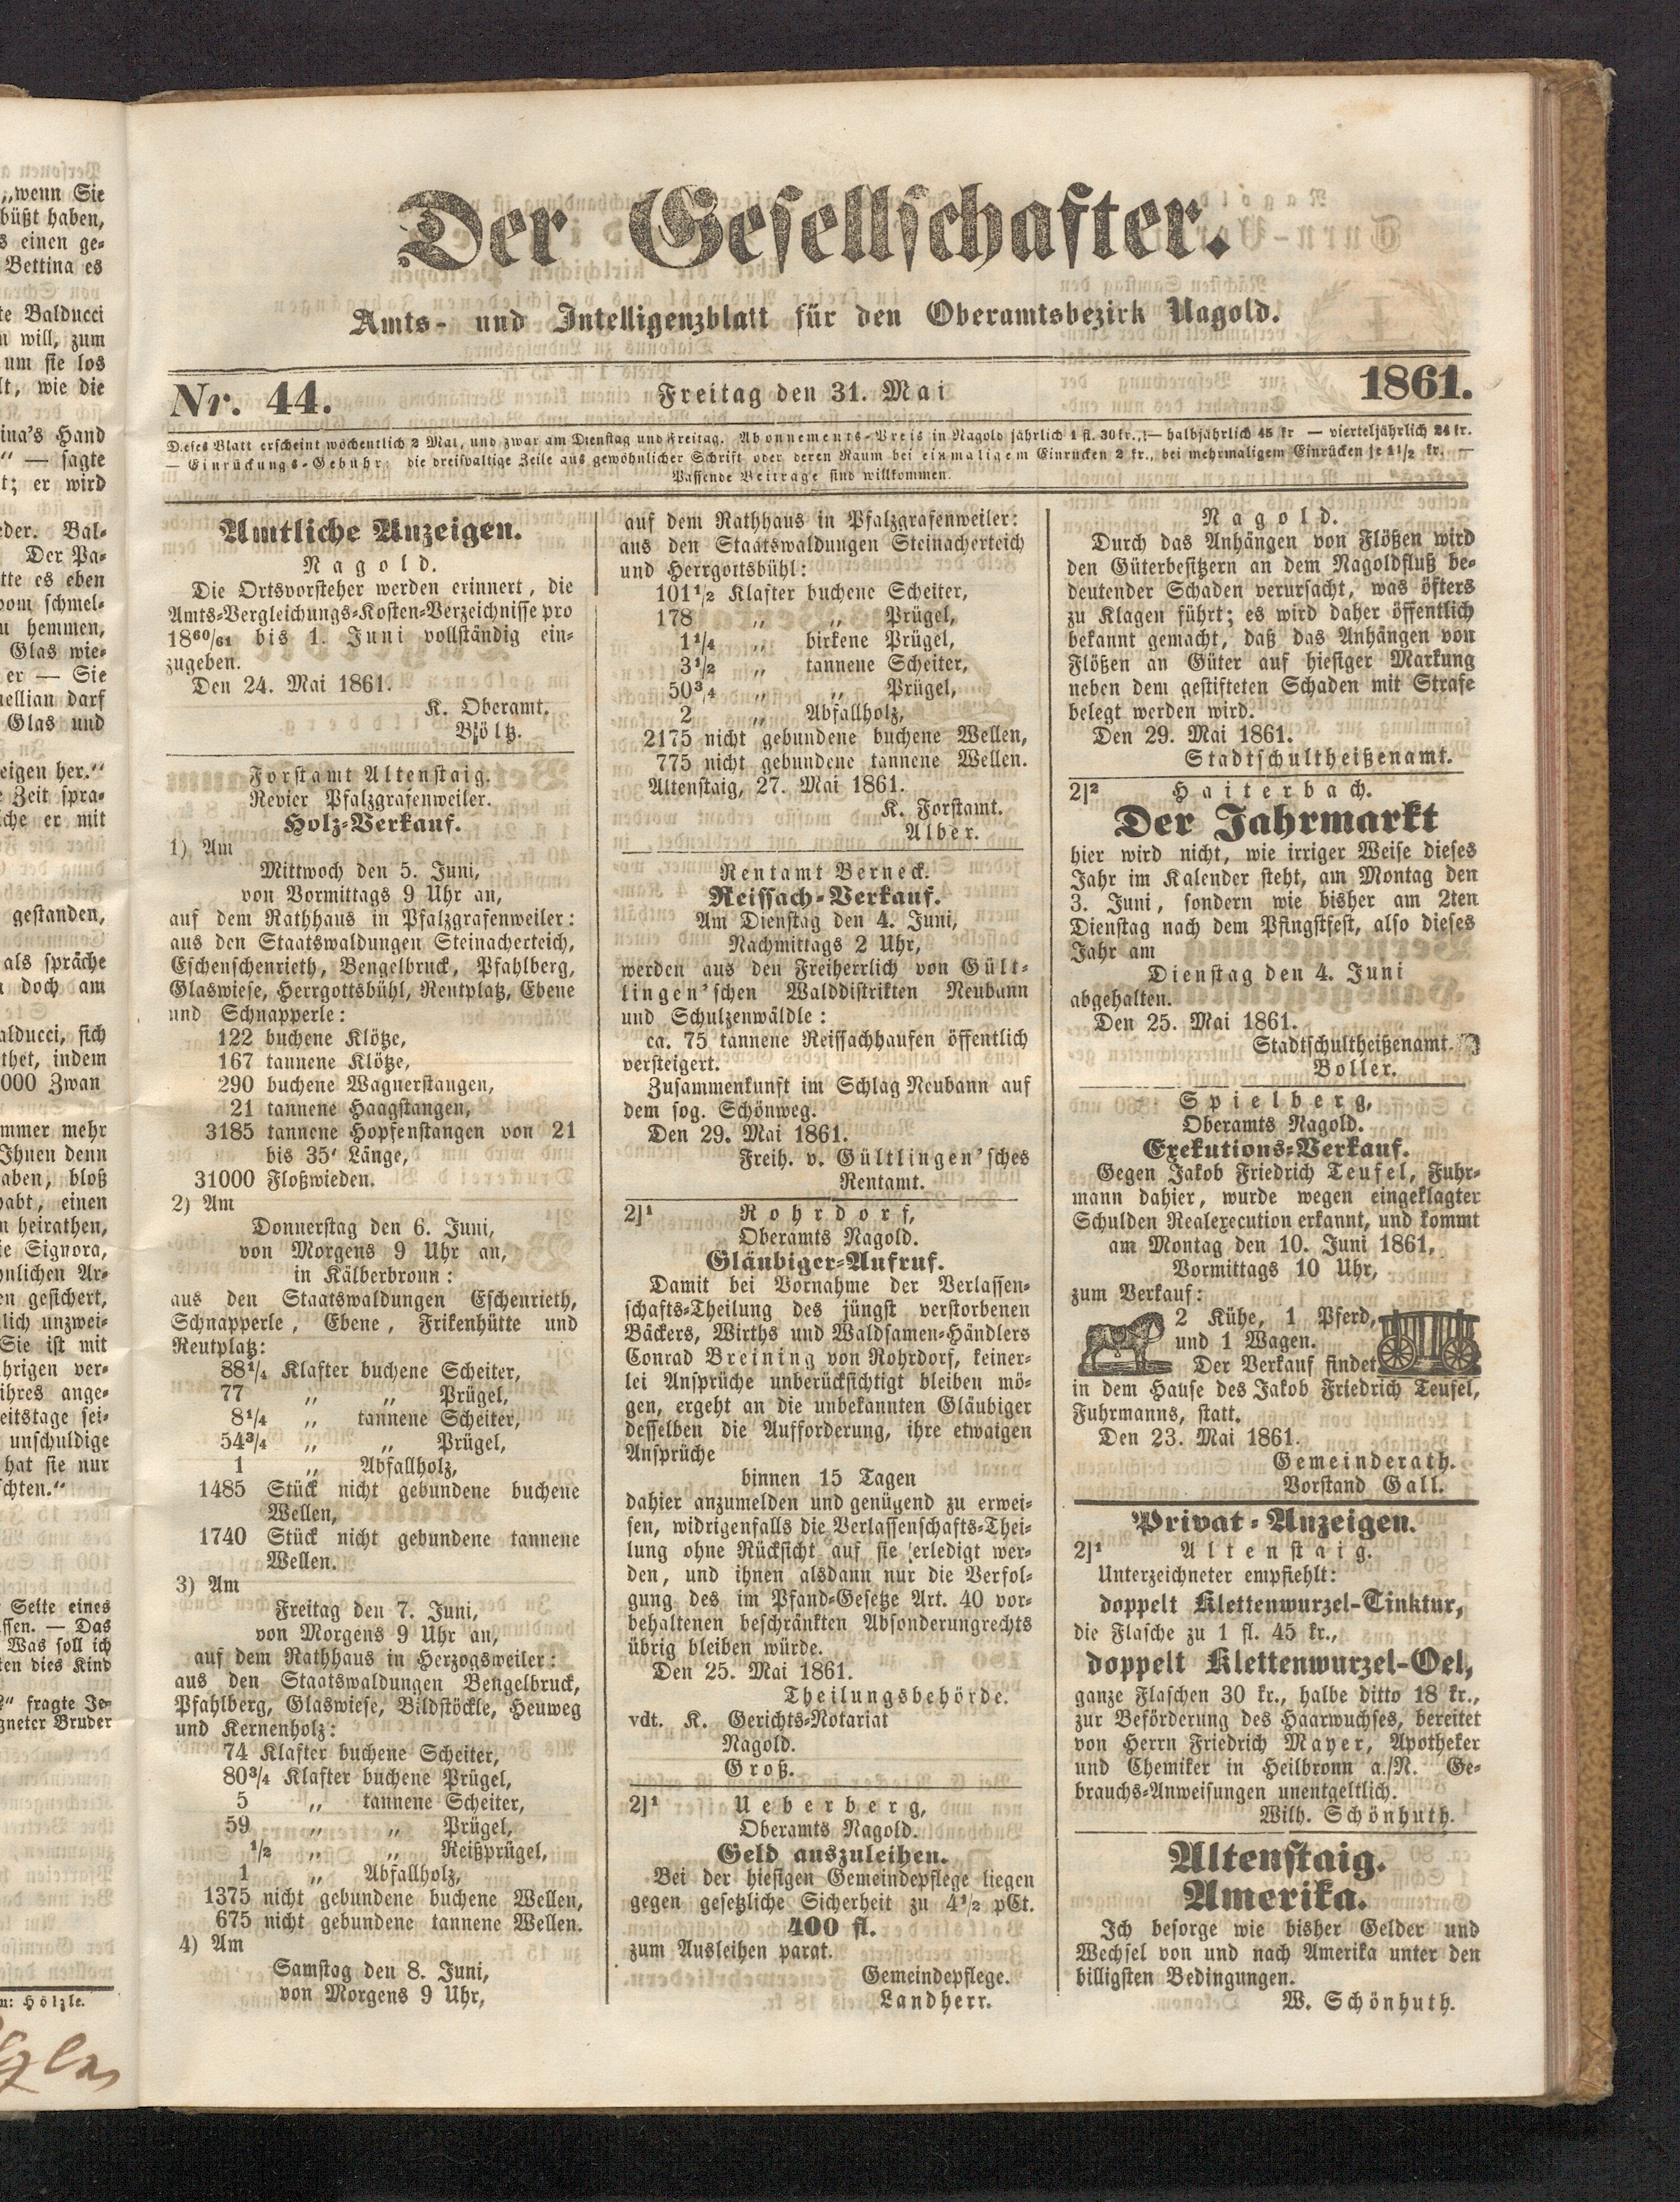 „wenn Sie
büßt haben,
s einen ge-
Bettina es
te Balducci
n will, zum
um sie los
lt, wie die
ina's Hand
" — sagte
t; er wird
eder. Bal-
Der Pa-
tte es eben
vom schmel-
u hemmen,
Glas wie-
er — Sie
nellian darf
Glas und
eigen her."
e Zeit spra-
che er mit
gestanden,
als spräche
n doch am
alducci, sich
thet, indem
000 Zwan
mmer mehr
Ihnen denn
aben, bloß
habt, einen
n heirathen,
ie Signora,
hnlichen Ar-
en gesichert,
lich unzwei-
Sie ist mit
hrigen ver-
ihres ange-
eitstage sei-
unschuldige
hat sie nur
chten."
Seite eines
ssen. — Das
Was soll ich
ten dies Kind
?" fragte Je-
gneter Bruder
n: Hölzle.
Der Gesellschafter.
Amts- und Intelligenzblatt für den Oberamtsbezirk Nagold.
Nr. 44. Freitag den 31. Mai 1861.
Dieses Blatt erscheint wöchentlich 2 Mal, und zwar am Dienstag und Freitag. Abonnements-Preis in Nagold jährlich 1 fl. 30 kr., — halbjährlich 45 kr — vierteljährlich 24 kr.
— Einrückungs-Gebühr: die dreispaltige Zeile aus gewöhnlicher Schrift oder deren Raum bei einmaligem Einrücken 2 kr., bei mehrmaligem Einrücken je 1 1/2 kr. —
Passende Beiträge sind willkommen.
Amtliche Anzeigen.
Nagold.
Die Ortsvorsteher werden erinnert, die
Amts-Vergleichungs-Kosten-Verzeichnisse pro
18 60/61 bis 1. Juni vollständig ein-
zugeben.
Den 24. Mai 1861.
K. Oberamt.
Böltz.
Forstamt Altenstaig.
Revier Pfalzgrafenweiler.
Holz-Verkauf.
1) Am
Mittwoch den 5. Juni,
von Vormittags 9 Uhr an,
auf dem Rathhaus in Pfalzgrafenweiler:
aus den Staatswaldungen Steinacherteich,
Eschenschenrieth, Bengelbruck, Pfahlberg,
Glaswiese, Herrgottsbühl, Reutplatz, Ebene
und Schnapperle:
122 buchene Klötze,
167 tannene Klötze,
290 buchene Wagnerstangen,
21 tannene Haagstangen,
3185 tannene Hopfenstangen von 21
bis 35' Länge,
31000 Floßwieden.
2) Am
Donnerstag den 6. Juni,
von Morgens 9 Uhr an,
in Kälberbronn:
aus den Staatswaldungen Eschenrieth,
Schnapperle, Ebene, Frikenhütte und
Reutplatz:
88 1/4 Klafter buchene Scheiter,
77 „ „ Prügel,
8 1/4 „ tannene Scheiter,
54 3/4 „ „ Prügel,
1 „ Abfallholz,
1485 Stück nicht gebundene buchene
Wellen,
1740 Stück nicht gebundene tannene
Wellen.
3) Am
Freitag den 7. Juni,
von Morgens 9 Uhr an,
auf dem Rathhaus in Herzogsweiler:
aus den Staatswaldungen Bengelbruck,
Pfahlberg, Glaswiese, Bildstöckle, Heuweg
und Kernenholz:
74 Klafter buchene Scheiter,
80 3/4 Klafter buchene Prügel,
5 „ tannene Scheiter,
59 „ „ Prügel,
1/2 „ „ Reißprügel,
1 „ Abfallholz,
1375 nicht gebundene buchene Wellen,
675 nicht gebundene tannene Wellen.
4) Am
Samstag den 8. Juni,
von Morgens 9 Uhr,
auf dem Rathhaus in Pfalzgrafenweiler:
aus den Staatswaldungen Steinacherteich
und Herrgottsbühl:
101 1/2 Klafter buchene Scheiter,
178 „ „ Prügel,
1 1/4 „ birkene Prügel,
3 1/2 „ tannene Scheiter,
50 3/4 „ „ Prügel,
2 „ Abfallholz,
2175 nicht gebundene buchene Wellen,
775 nicht gebundene tannene Wellen.
Altenstaig, 27. Mai 1861.
K. Forstamt.
Alber.
Rentamt Berneck.
Reissach-Verkauf.
Am Dienstag den 4. Juni,
Nachmittags 2 Uhr,
werden aus den Freiherrlich von Gült-
lingen'schen Walddistrikten Neubann
und Schulzenwäldle:
ca. 75 tannene Reissachhaufen öffentlich
versteigert.
Zusammenkunft im Schlag Neubann auf
dem sog. Schönweg.
Den 29. Mai 1861.
Freih. v. Gültlingen'sches
Rentamt.
2]1 Rohrdorf,
Oberamts Nagold.
Gläubiger-Aufruf.
Damit bei Vornahme der Verlassen-
schafts-Theilung des jüngst verstorbenen
Bäckers, Wirths und Waldsamen-Händlers
Conrad Breining von Rohrdorf, keiner-
lei Ansprüche unberücksichtigt bleiben mö-
gen, ergeht an die unbekannten Gläubiger
desselben die Aufforderung, ihre etwaigen
Ansprüche
binnen 15 Tagen
dahier anzumelden und genügend zu erwei-
sen, widrigenfalls die Verlassenschafts-Thei-
lung ohne Rücksicht auf sie erledigt wer-
den, und ihnen alsdann nur die Verfol-
gung des im Pfand-Gesetze Art. 40 vor-
behaltenen beschränkten Absonderungrechts
übrig bleiben würde.
Den 25. Mai 1861.
Theilungsbehörde.
vdt. K. Gerichts-Notariat
Nagold.
Groß.
2]1 Ueberberg,
Oberamts Nagold.
Geld auszuleihen.
Bei der hiesigen Gemeindepflege liegen
gegen gesetzliche Sicherheit zu 4 1/2 pCt.
400 fl.
zum Ausleihen parat.
Gemeindepflege.
Landherr.
Nagold.
Durch das Anhängen von Flößen wird
den Güterbesitzern an dem Nagoldfluß be-
deutender Schaden verursacht, was öfters
zu Klagen führt; es wird daher öffentlich
bekannt gemacht, daß das Anhängen von
Flößen an Güter auf hiesiger Markung
neben dem gestifteten Schaden mit Strafe
belegt werden wird.
Den 29. Mai 1861.
Stadtschultheißenamt.
2]2 Haiterbach.
Der Jahrmarkt
hier wird nicht, wie irriger Weise dieses
Jahr im Kalender steht, am Montag den
3. Juni, sondern wie bisher am 2ten
Dienstag nach dem Pfingstfest, also dieses
Jahr am
Dienstag den 4. Juni
abgehalten.
Den 25. Mai 1861.
Stadtschultheißenamt.
Boller.
Spielberg,
Oberamts Nagold.
Exekutions-Verkauf.
Gegen Jakob Friedrich Teufel, Fuhr-
mann dahier, wurde wegen eingeklagter
Schulden Realexecution erkannt, und kommt
am Montag den 10. Juni 1861,
Vormittags 10 Uhr,
zum Verkauf:
2 Kühe, 1 Pferd,
und 1 Wagen.
Der Verkauf findet
in dem Hause des Jakob Friedrich Teufel,
Fuhrmanns, statt.
Den 23. Mai 1861.
Gemeinderath.
Vorstand Gall.
Privat-Anzeigen.
2]1 Altenstaig.
Unterzeichneter empfiehlt:
doppelt Klettenwurzel-Tinktur,
die Flasche zu 1 fl. 45 kr.,
doppelt Klettenwurzel-Oel,
ganze Flaschen 30 kr., halbe ditto 18 kr.,
zur Beförderung des Haarwuchses, bereitet
von Herrn Friedrich Mayer, Apotheker
und Chemiker in Heilbronn a./N. Ge-
brauchs-Anweisungen unentgeltlich.
Wilh. Schönhuth.
Altenstaig.
Amerika.
Ich besorge wie bisher Gelder und
Wechsel von und nach Amerika unter den
billigsten Bedingungen.
W. Schönhuth.